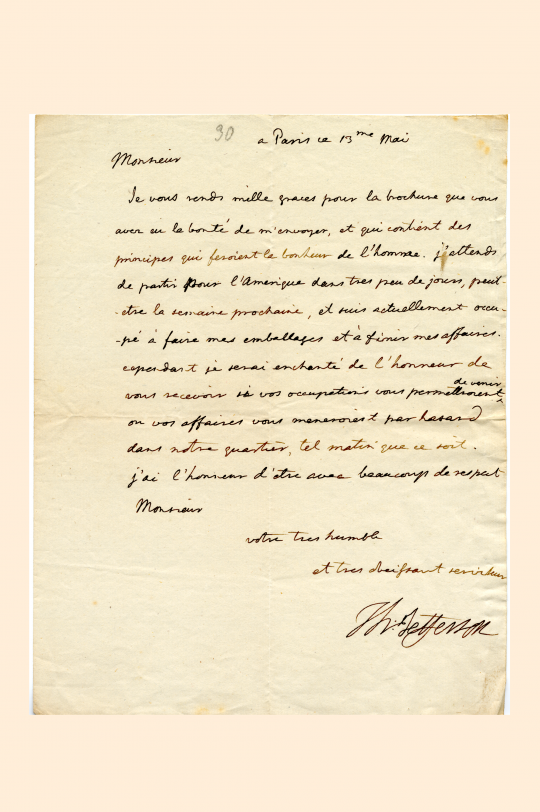 30
a Paris ce 13me Mai
Monsieur
Je vous rends mille graces pour la brochure que vous
avez eu la bonté de m'envoyer, et qui contient des
principes qui feroient le bonheur de l'homme. j'attends
de partir pour l'Amerique dans tres peu de jours, peut-
-etre la semaine prochaine, et suis actuellement occu-
-pé à faire mes emballages et à finir mes affaires.
cependant je serai enchanté de l'honneur de
vous recevoir si vos occupations vous permettroient
de venir
ou vos affaires vous meneroient par hasard
dans notre quartier, tel matin que ce soit.
j'ai l'honneur d'etre avec beaucoup de respect
Monsieur
votre tres humble
et tres obeissant serviteur
Th: Jefferson